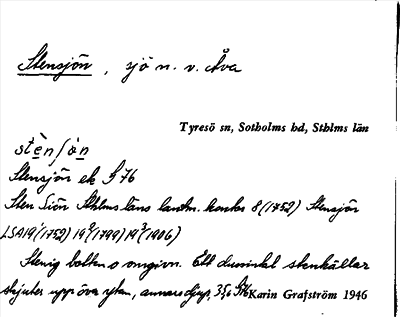 Stensjön, sjö n. v. Åva
Tyresö sn, Sotholms hd, Sthlms län
Stensjön ek S 76
Sten Siön Sthlms läns landm. kontor 8 (1752) Stensjön
LSA 19 (1752) 19 (1799) 19 (1906)
Stenig botten o omgivn. Ett dussintal stenhällar
skjuter upp över ytan, annars djup,
Karin Grafström 1946